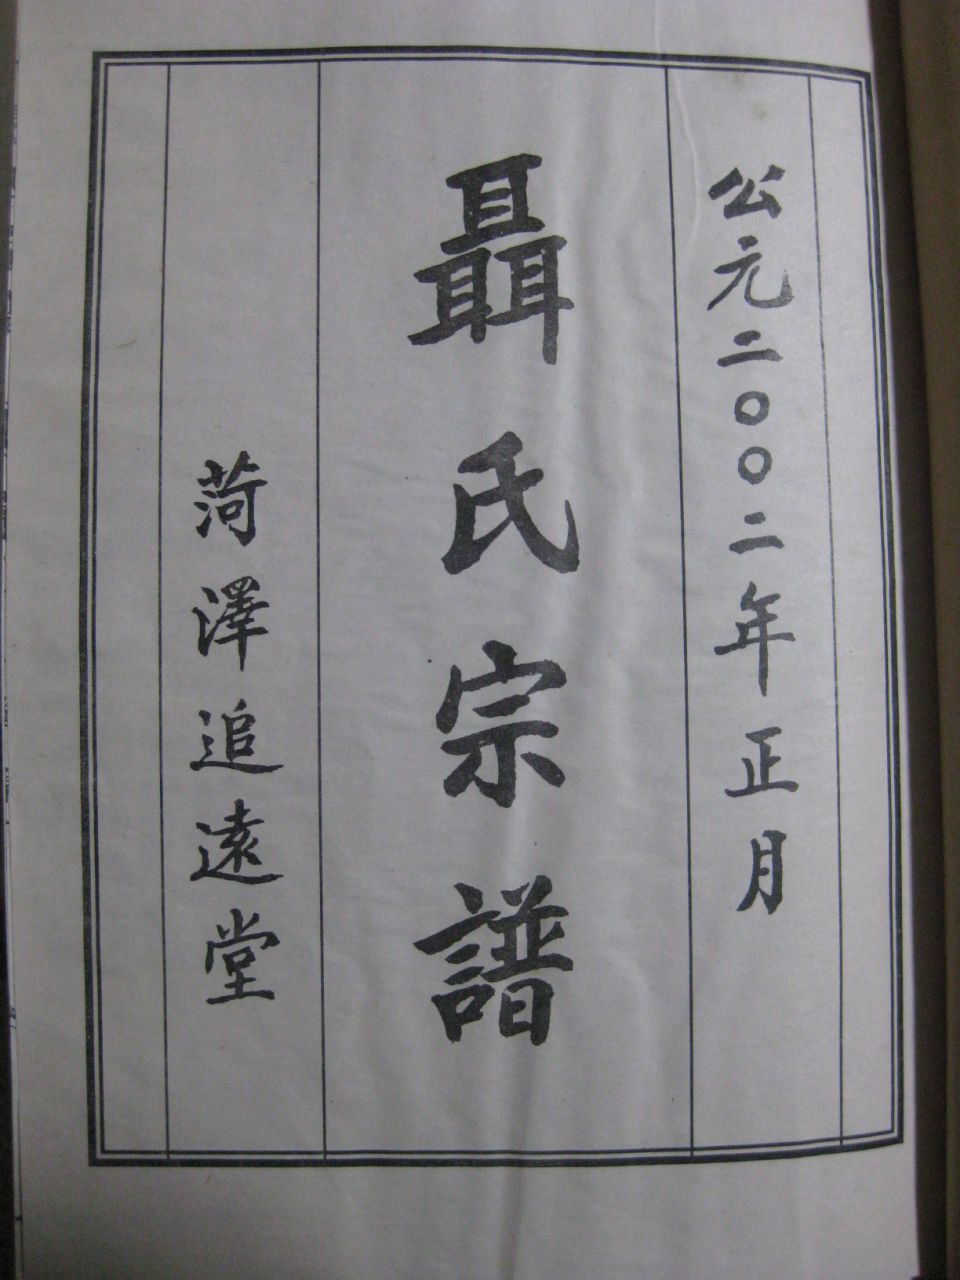 公元二〇〇二年正月
聶氏宗譜
菏澤追遠堂